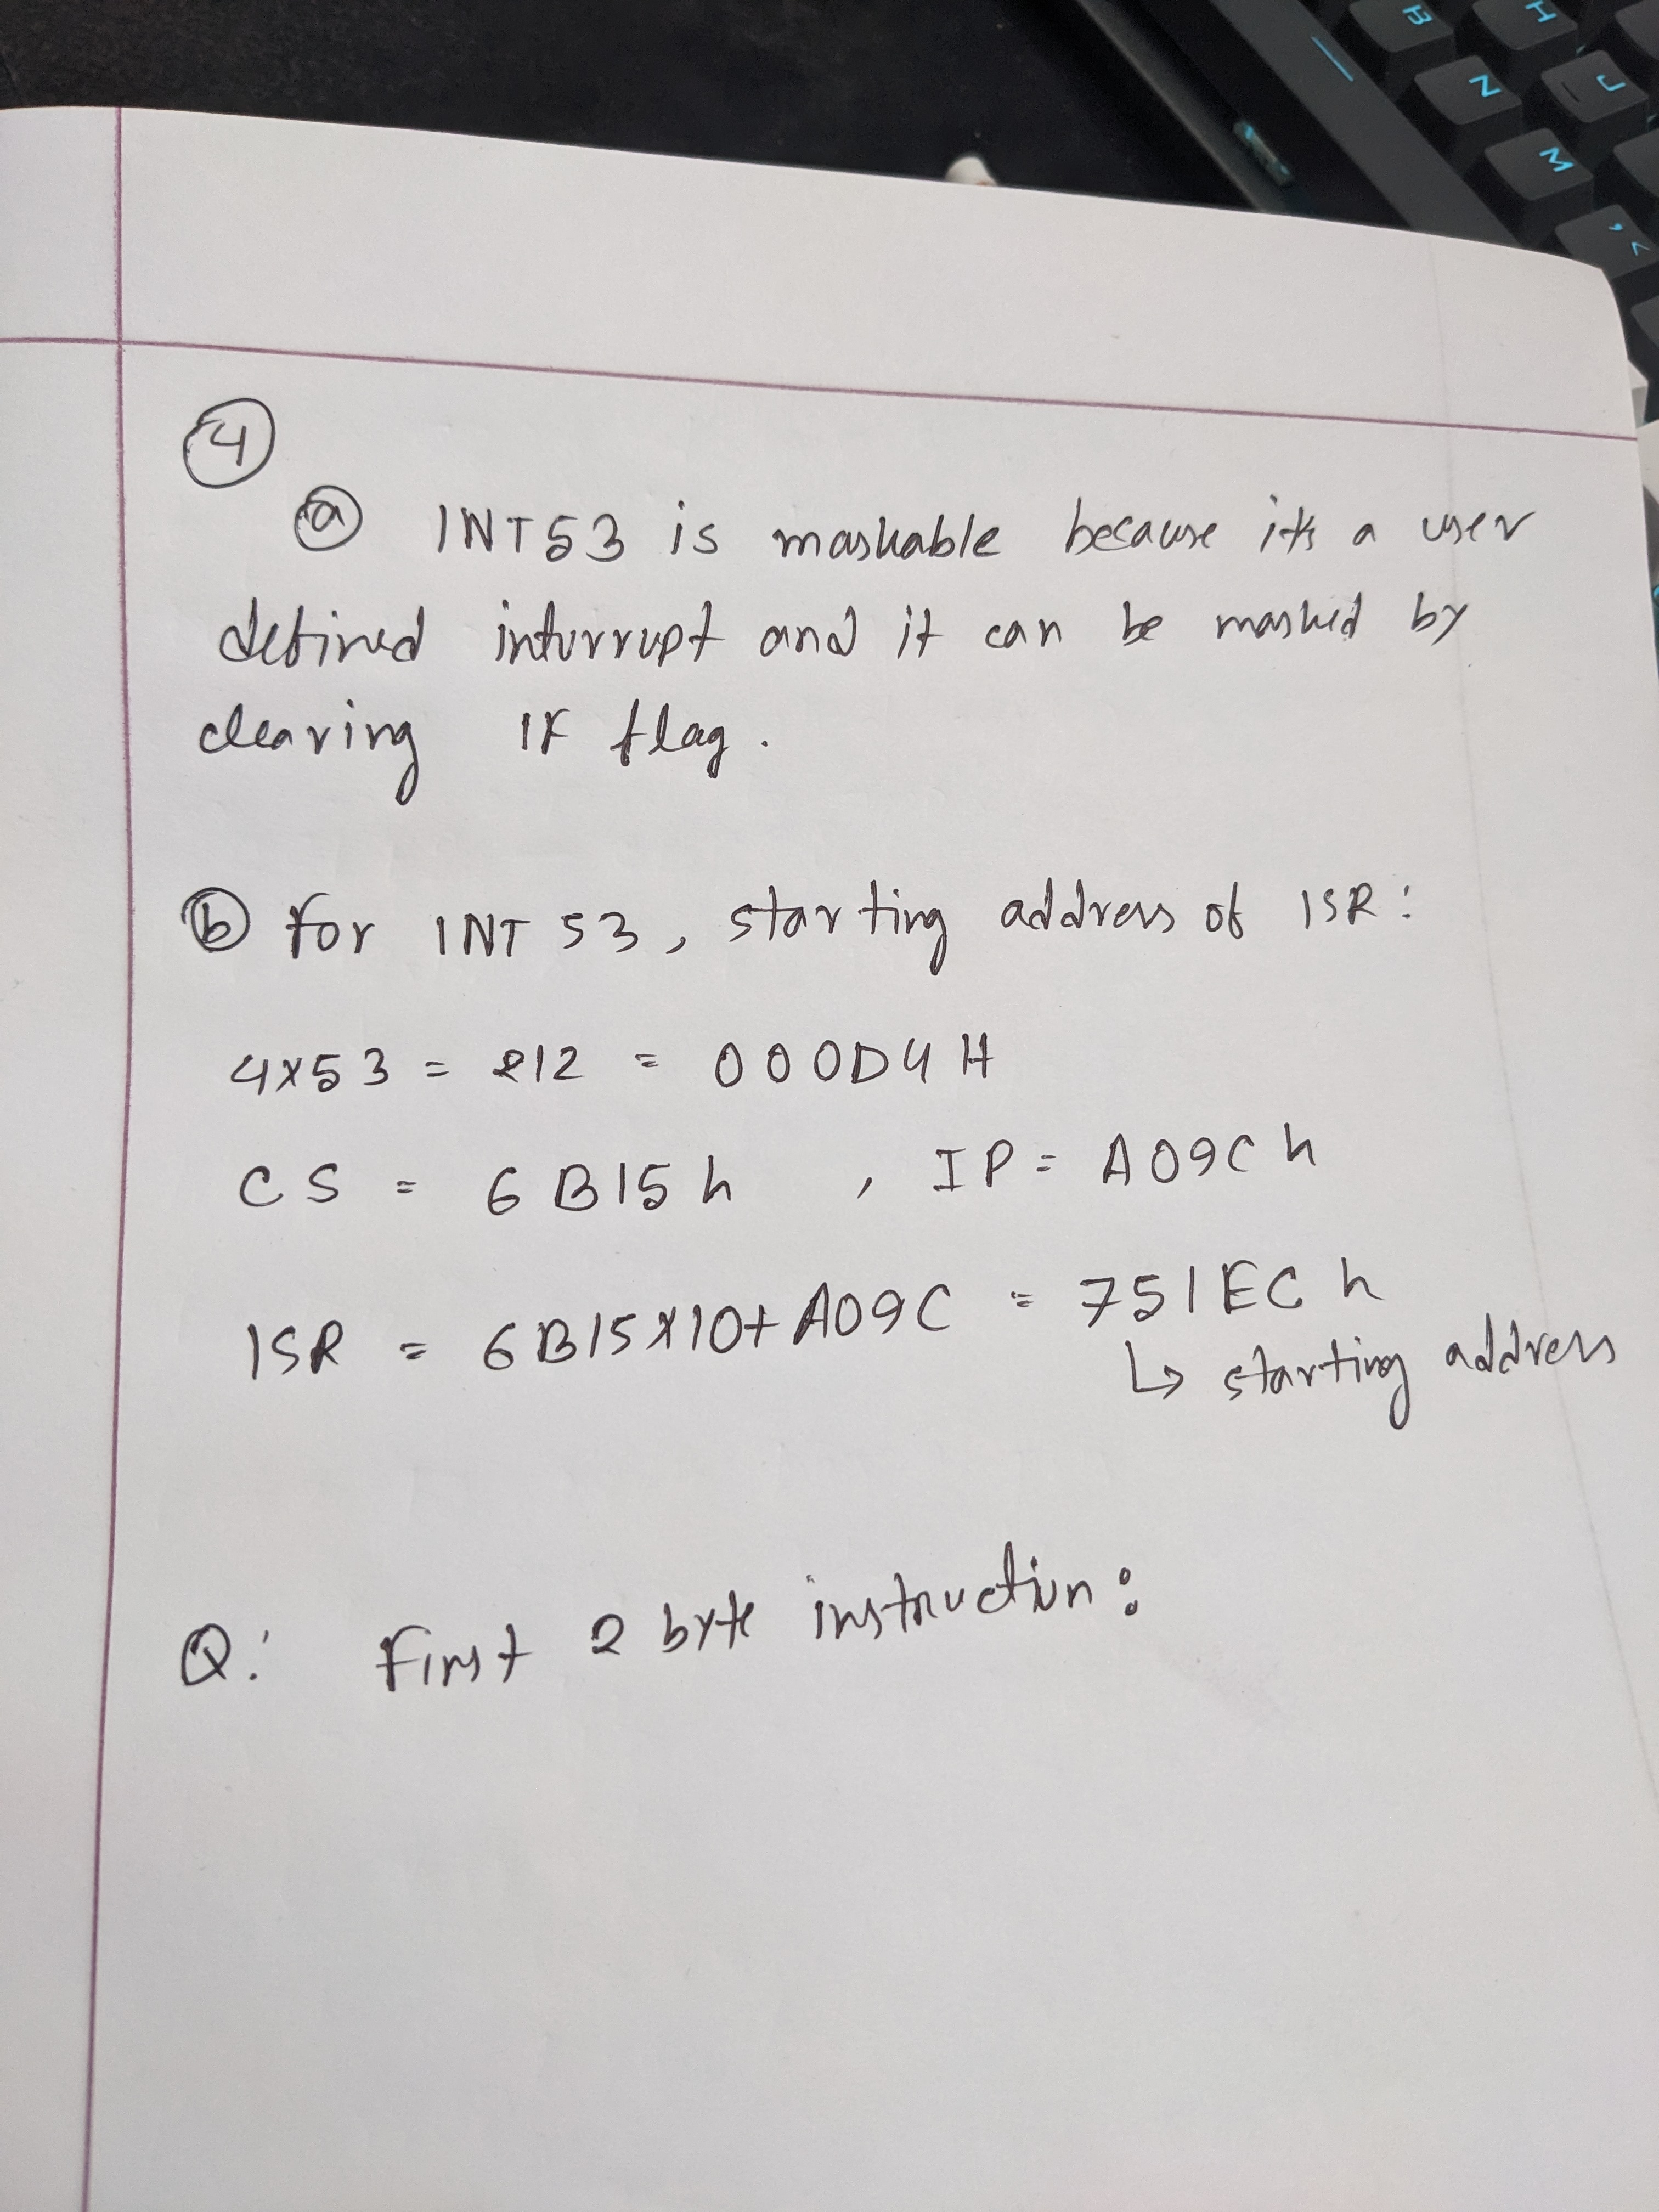 B H
N J
M
, <
4
a INT53 is maskable because it's a user
defined interrupt and it can be masked by
clearing IF flag.
b For INT 53, starting address of ISR:
4x53 = 212 = 000D4H
CS = 6B15h , IP = A09Ch
ISR = 6B15x10+A09C = 751ECh
↳ starting address
Q: First 2 byte instruction: